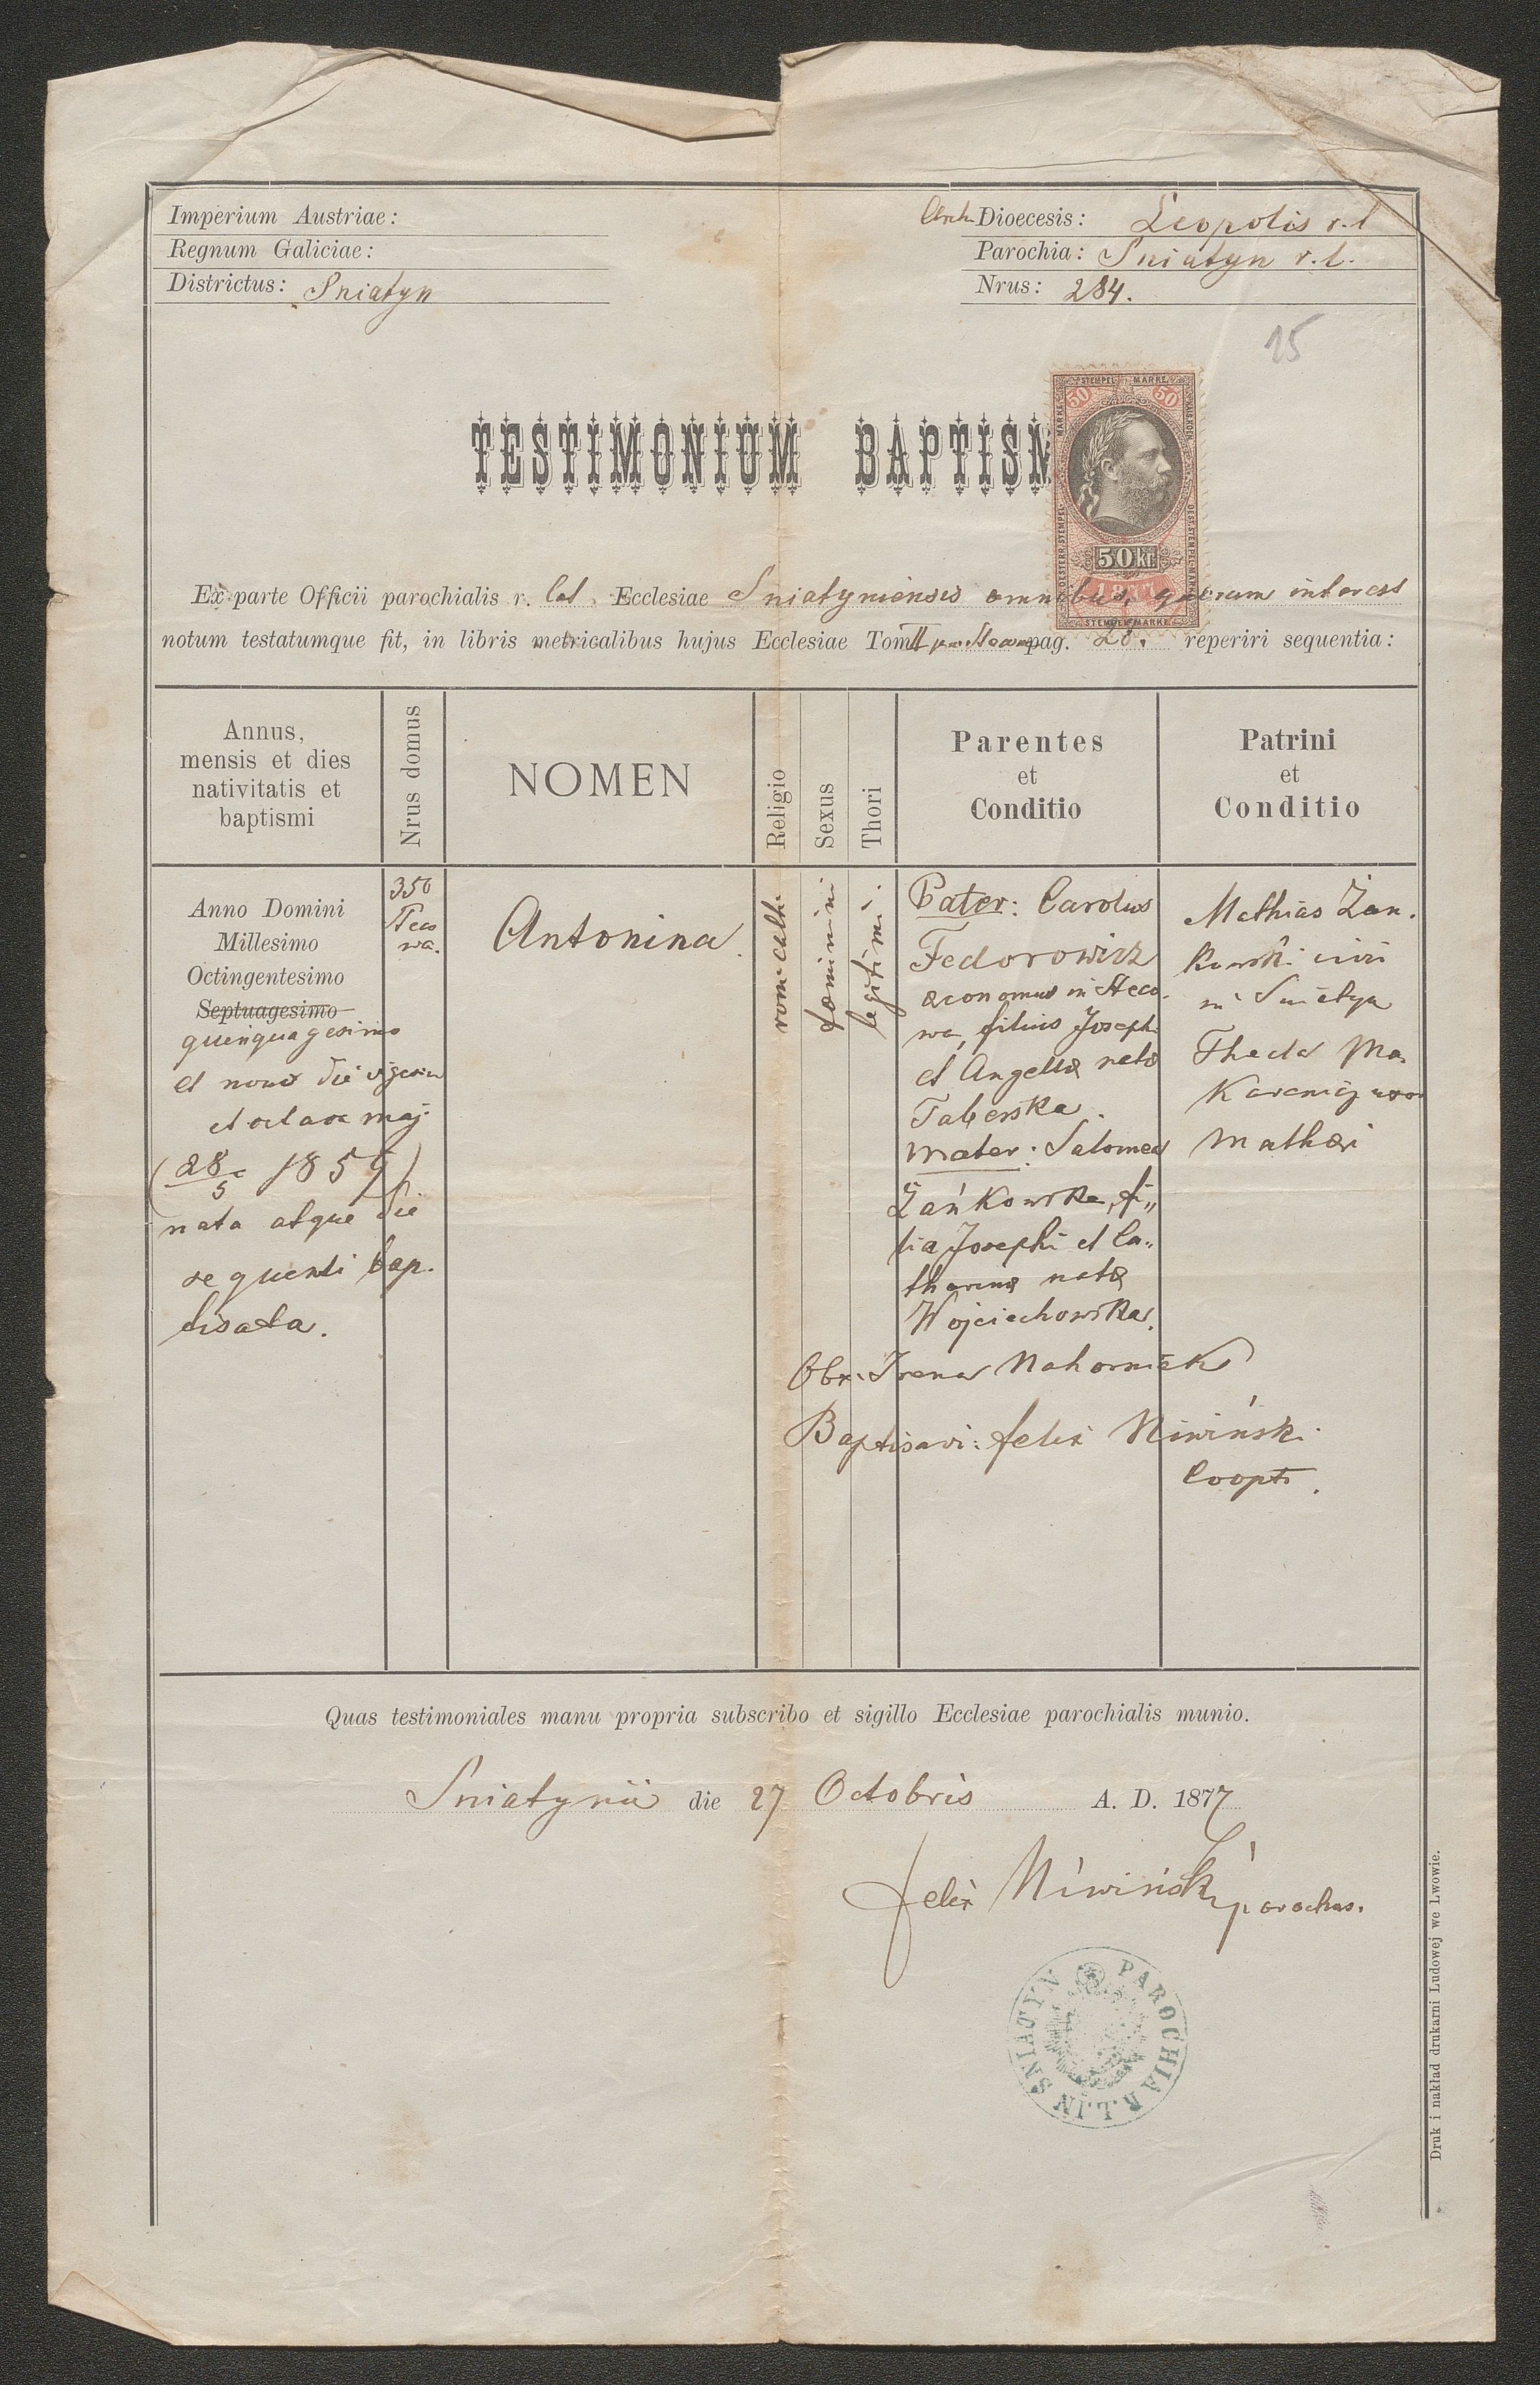 Imperium Austriae:
Regnum Galiciae:
Districtus: Sniatyn
Dioecesis: Leopolis r. l
Parochia: Sniatyn r. l.
Nrus: 284.
15
TESTIMONIUM BAPTISM
STEMPEL MARKE
50 50
50 kr.
STEMPEL MARKE
Ex parte Officii parochialis r. lat. Ecclesiae Sniatyniensis omnibus, quorum interest
notum testatumque fit, in libris metricalibus hujus Ecclesiae Tom II pro Stecowa pag. 28. reperiri sequentia:
Annus,
mensis et dies
nativitatis et
baptismi
Nrus domus
NOMEN
Religio
Sexus
Thori
Parentes
et
Conditio
Patrini
et
Conditio
Anno Domini
Millesimo
Octingentesimo
Septuagesimo
quinquagesimo
et nono die vigesima
et octava maj
(28/5 1859)
nata atque die
sequenti bap.
tisata.
350
Steco
wa.
Antonina
rom. cath.
foeminini
legitimi.
Pater: Carolus
Fedorowicz
œconomus in Steco-
wa, filius Josephi
et Angellæ natæ
Taberska.
Mater: Salomea
Żańkowska, fi„
lia Josephi et Ca„
tharinæ natæ
Wojciechowska.
Mathias Żan.
kowski civis
in Sniatyn
Thecla Ma.
karewicz uxor
Mathæi
Obx: Irena Nahorniak
Baptisavi: Felix Niwiński
Coopr.
Quas testimoniales manu propria subscribo et sigillo Ecclesiae parochialis munio.
Sniatynii die 27 Octobris A. D. 1877
Felix Niwiński parochus.
PAROCHIA R. L. IN SNIATYN
Druk i nakład drukarni Ludowej we Lwowie.